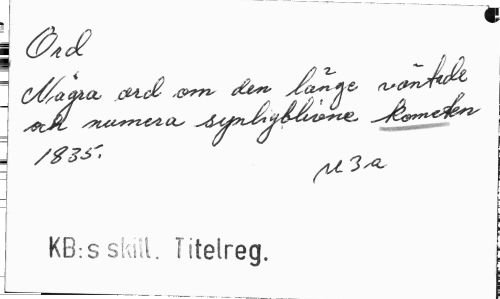 Ord
Några ord om den länge väntade
och numera synligblivne kometen
1835.
U 3 a
KB:s skill. Titelreg.